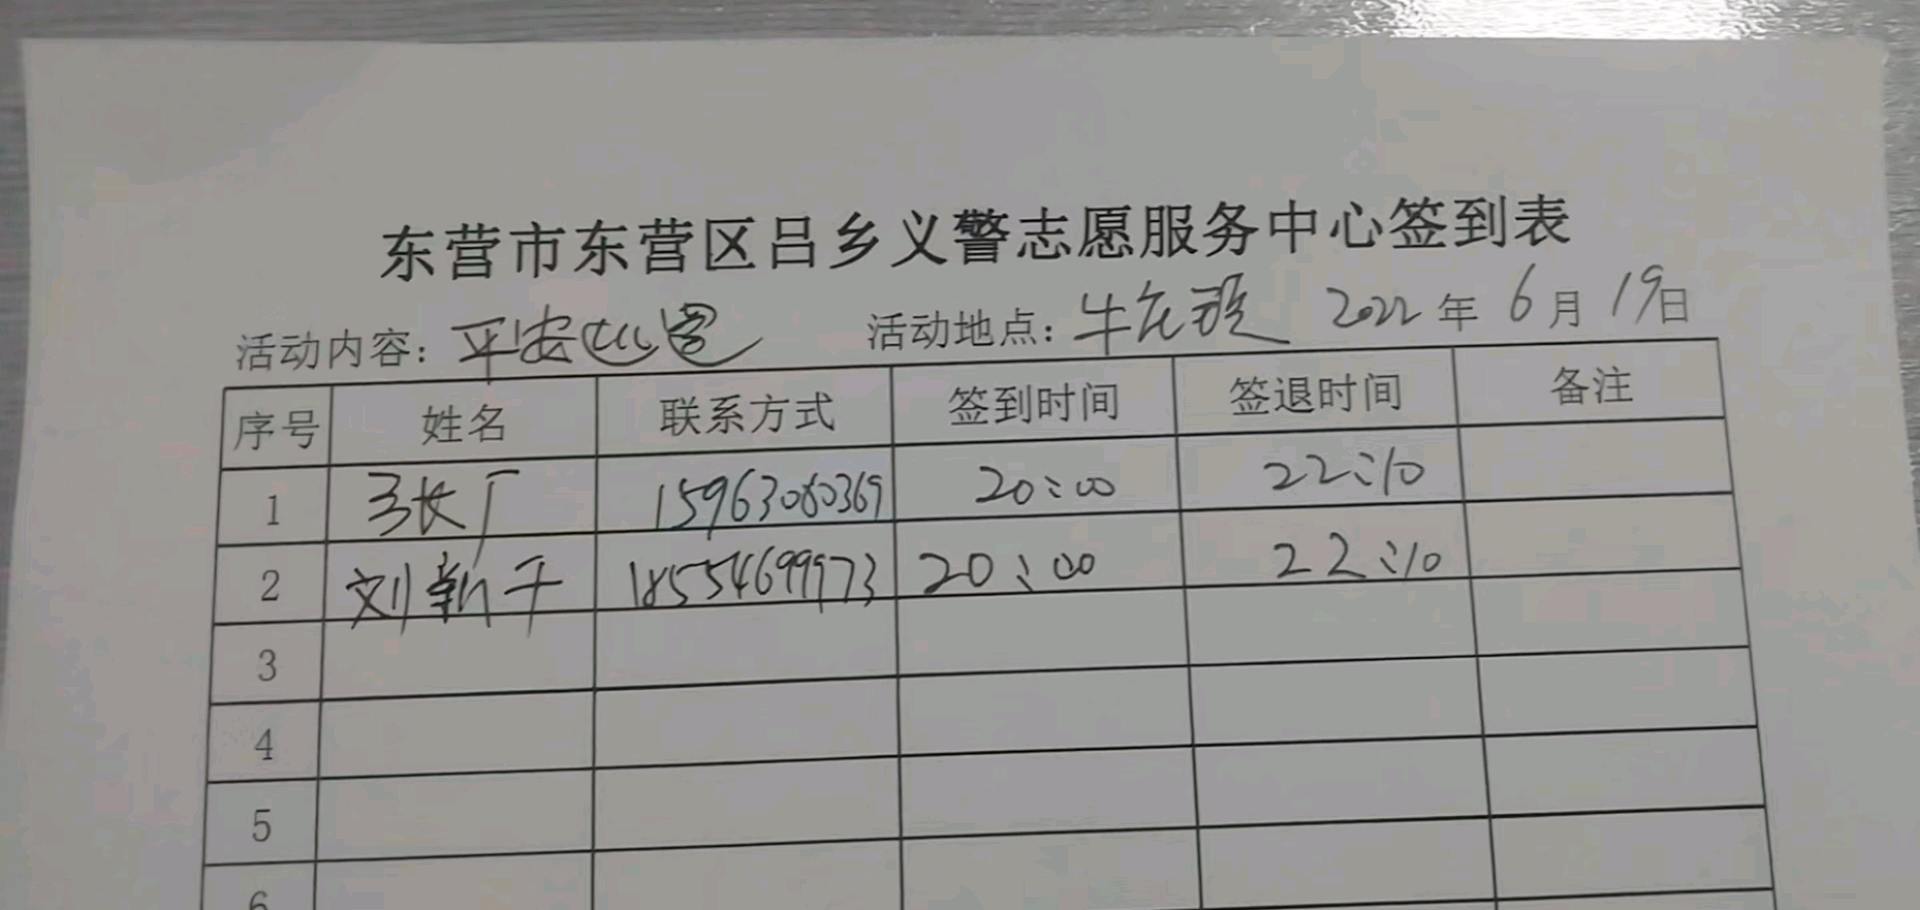 东营市东营区吕乡义警志愿服务中心签到表
活动内容：平安巡逻 活动地点：牛庄 2022年6月19日
序号 姓名 联系方式 签到时间 签退时间 备注
1 15963060369 20:00 22:10
2 刘新千 18554699973 20:00 22:10
3
4
5
6